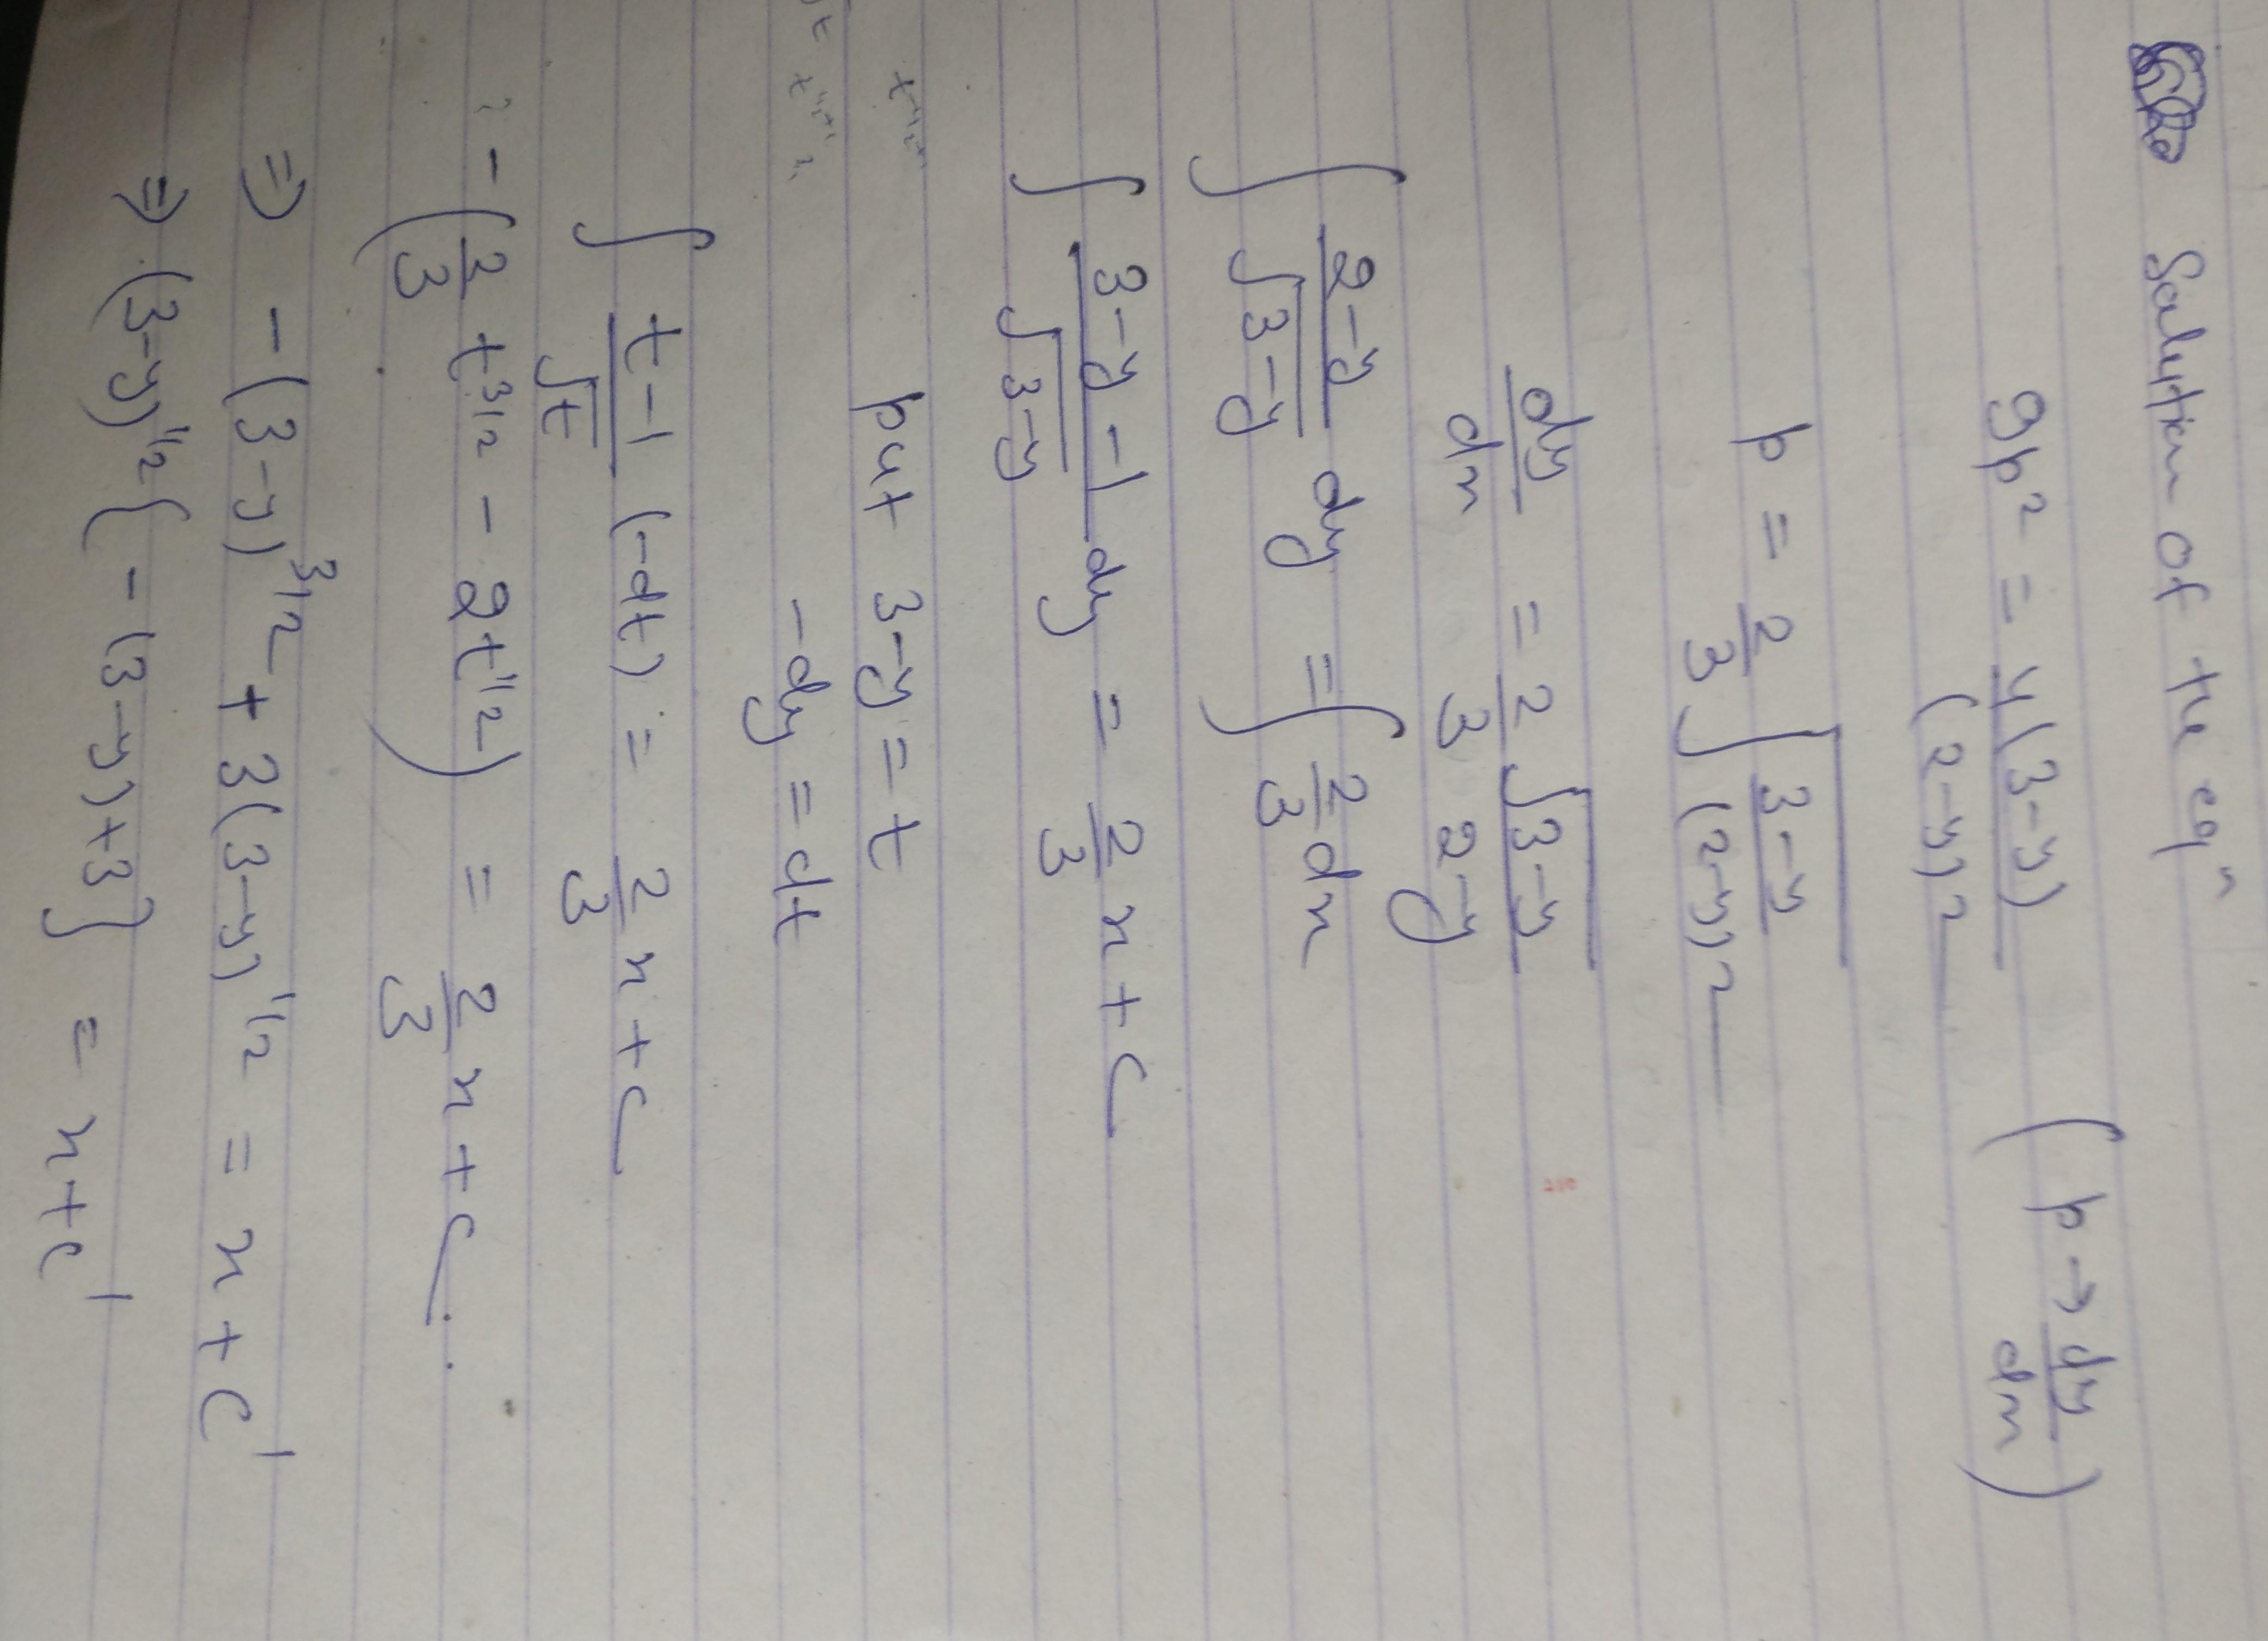 Solution of the eqⁿ
9p² = 4(3-y)/(2-y)² (p → dy/dx)
p = 2/3 √((3-y)/(2-y)²)
dy/dx = 2/3 √(3-y)/(2-y)
∫ (2-y)/√(3-y) dy = ∫ 2/3 dx
∫ (3-y-1)/√(3-y) dy = 2/3 x + c
put 3-y = t
-dy = dt
∫ (t-1)/√t (-dt) = 2/3 x + c
-(2/3 t^3/2 - 2t^1/2) = 2/3 x + c
⇒ -(3-y)^3/2 + 3(3-y)^1/2 = x + c'
⇒ (3-y)^1/2 { -(3-y)+3} = x+c'